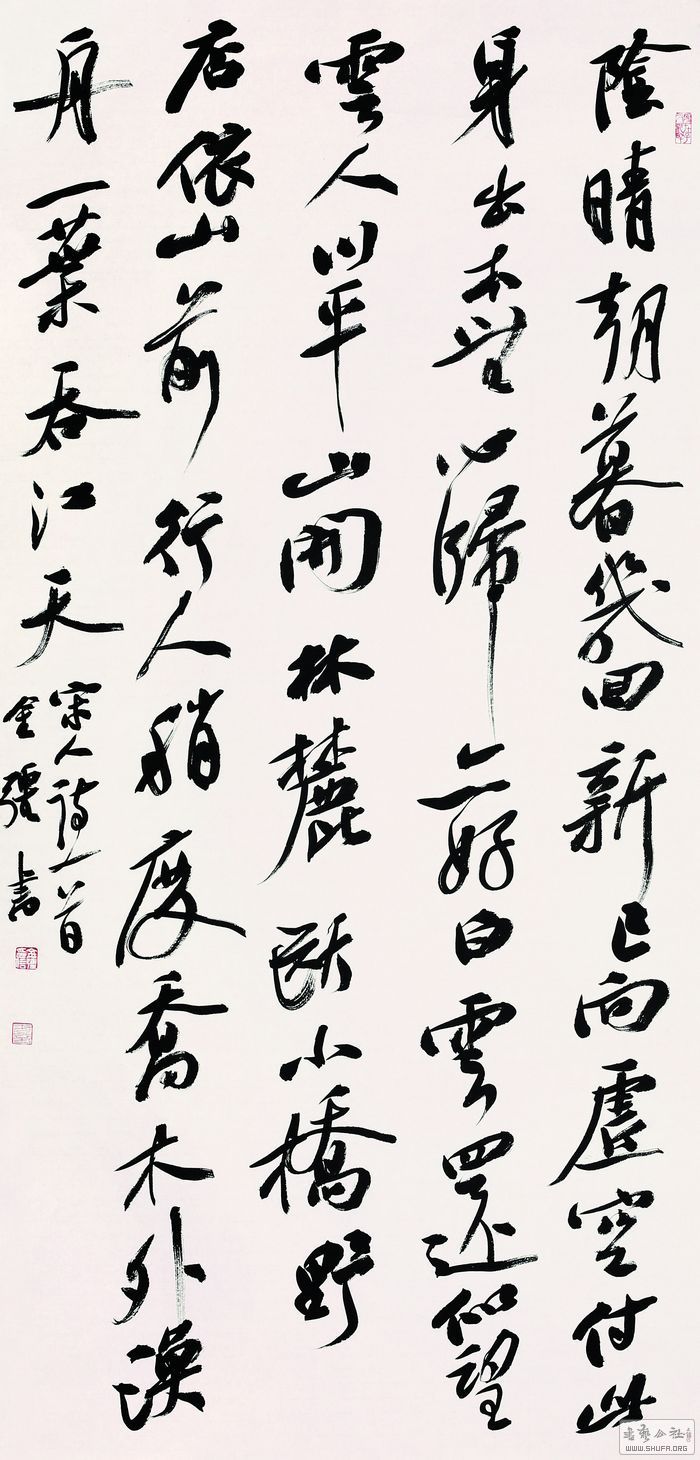 陰晴朝暮幾回新已向虛空付此
身出本無心歸亦好白雲還似望
雲人川平山開林麓斷小橋野
店依山前行人稍度喬木外漁
舟一葉吞江天
宋人詩二首
金彊書
WWW.SHUFA.ORG